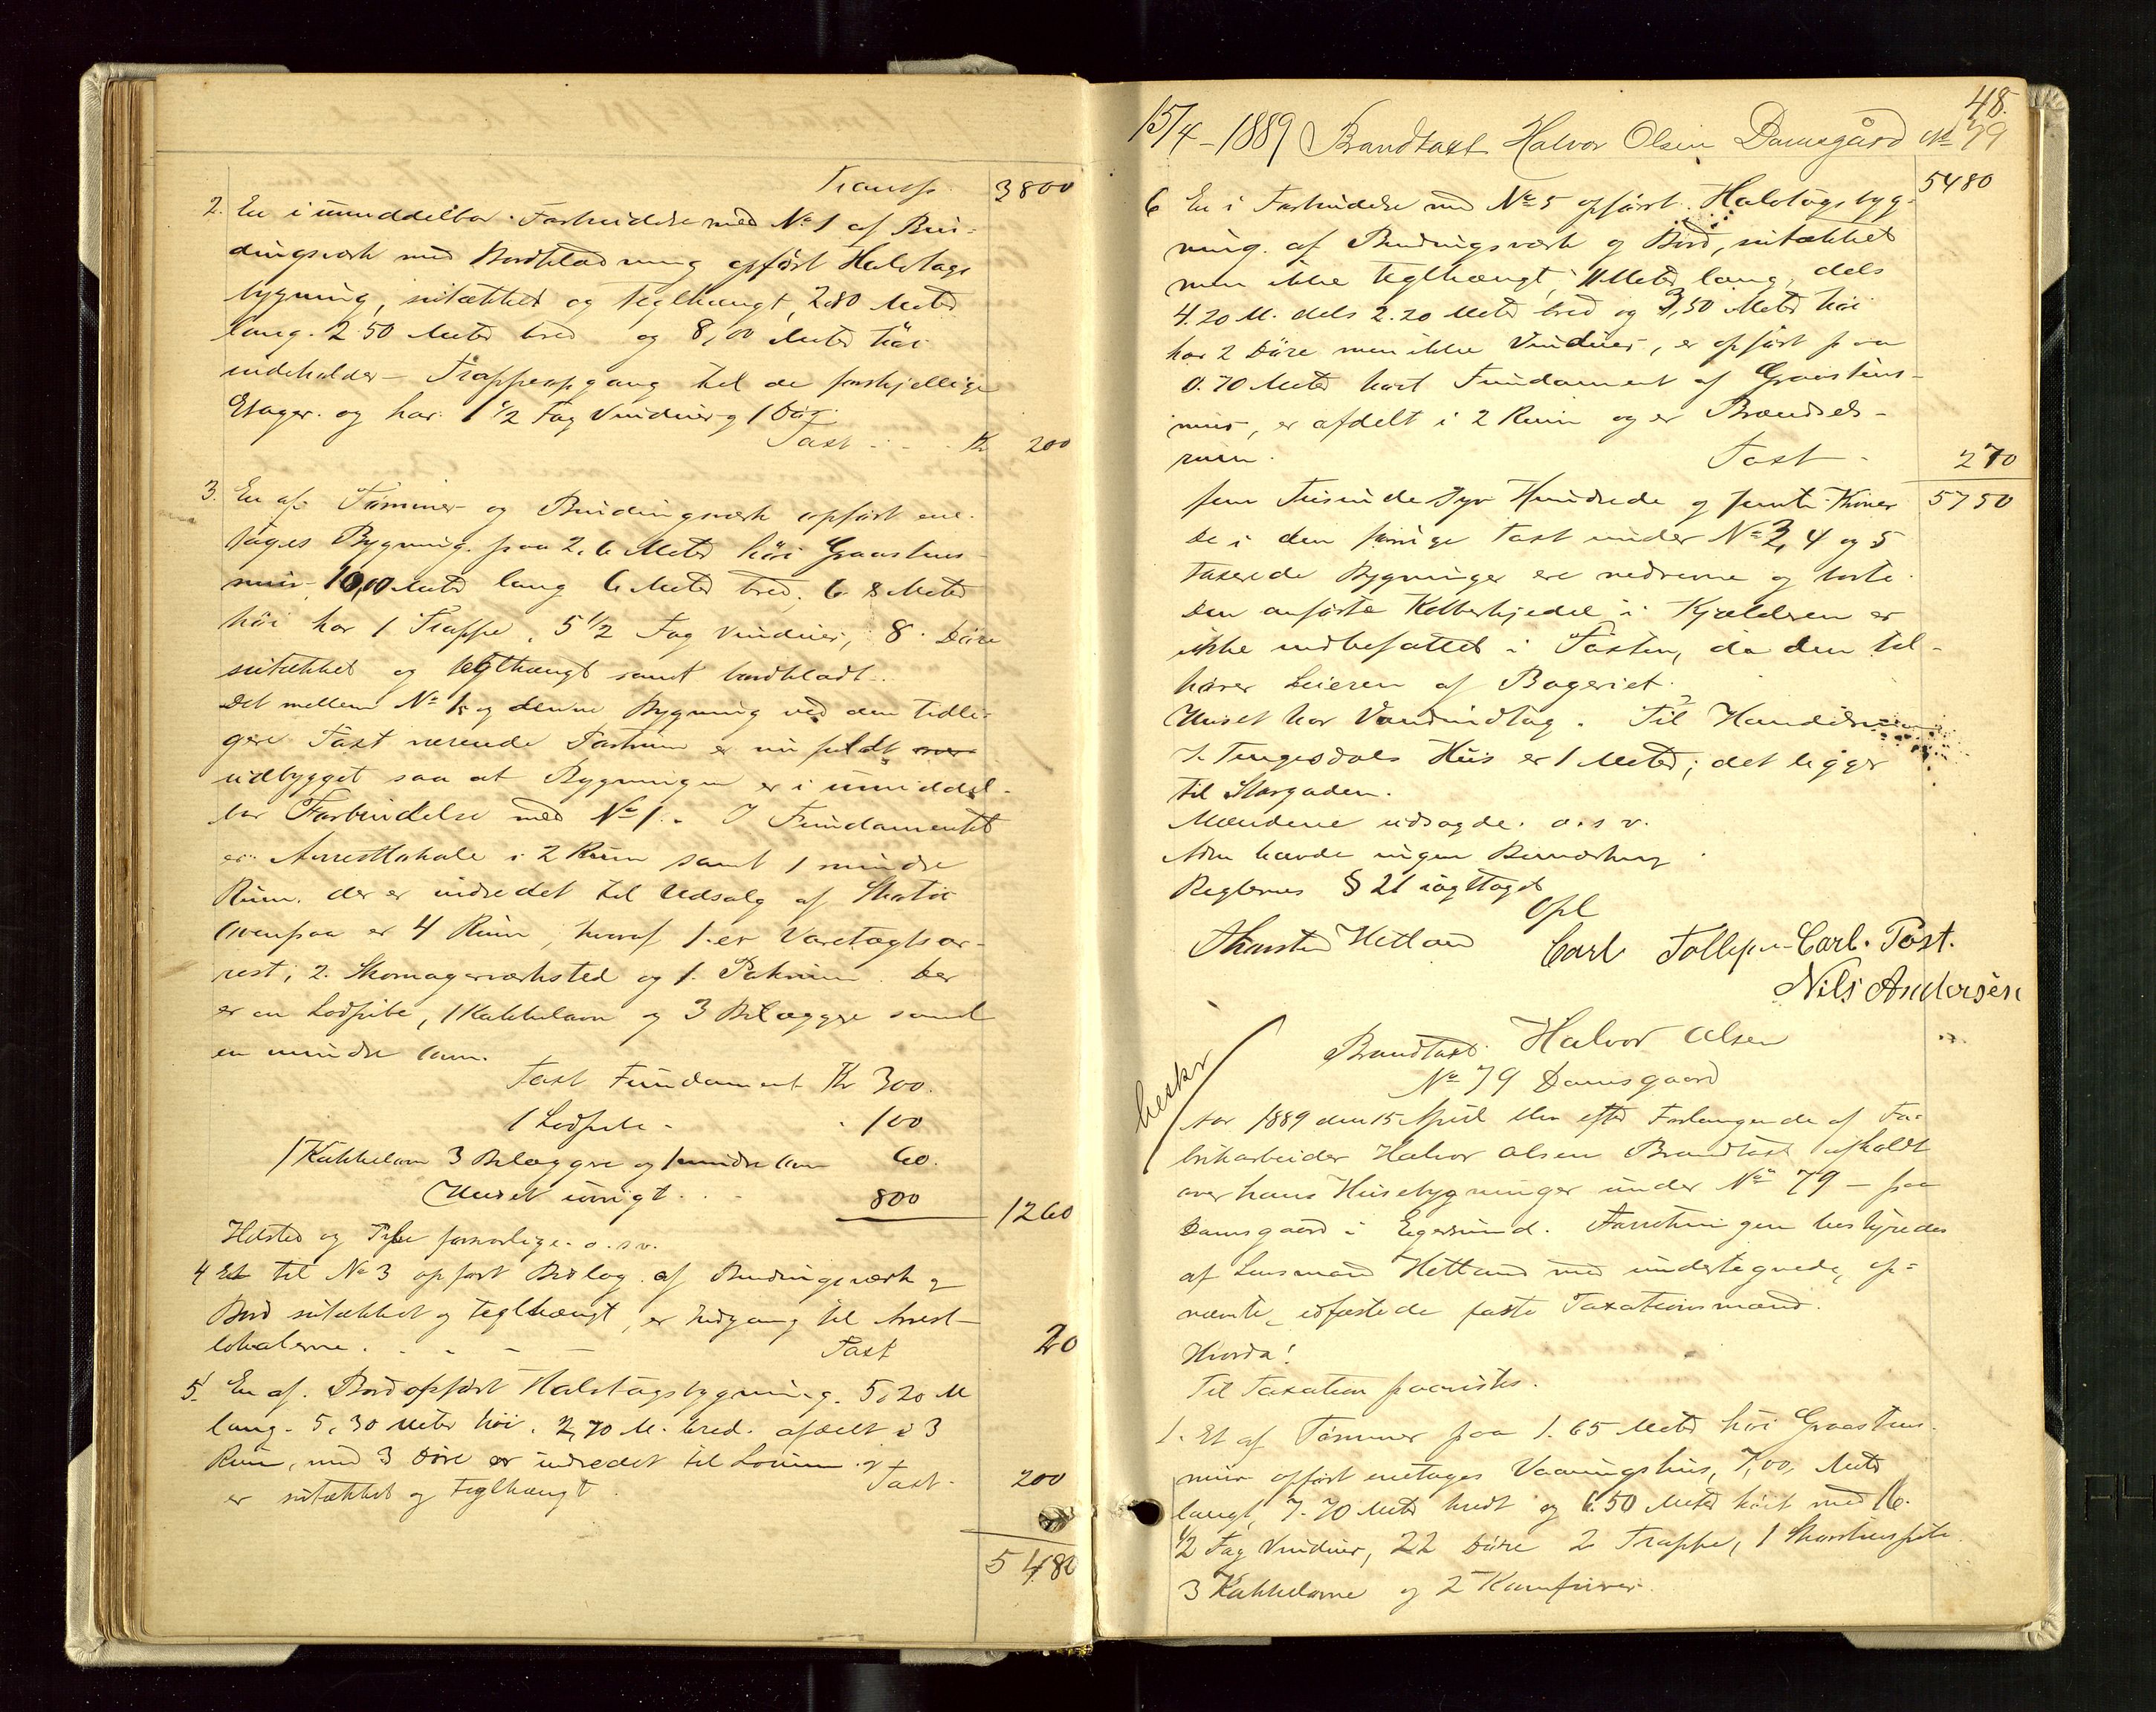 Transp. 3800
2. En i umiddelbar Forbindelse med No 1 af Bin-
dingsværk med Bordklædning opført Halvtags
bygning, sutækket og teglhængt, 2.80 Meter
lang. 2.50 Meter bred og 8,00 Meter høi
indeholder Trappeopgang til de forskjellige
Etager. og har 1 1/2 Fag Vinduer og 1 Dør.
Taxt - - - Kr 200
3. En af Tømmer og Bindingsværk opført ene-
tages Bygning. paa 2,6 Meter høi Graastens
muur 10,00 Meter lang 6 Meter bred. 6.8 Meter
høi har 1 Trappe, 5 1/2 Fag Vinduer, 8 Døre
sutækket og teglhængt samt bordklædt.
Det mellem No 1 og denne Bygning ved den tidli-
gere Taxt værende er nu
udbygget saa at Bygningen er i umiddel-
bar Forbindelse med No 1. I Fundamentet
er Arrestlokale i 2 Rum samt 1 mindre
Rum. der er indredet til Udsalg af Skotøi
Ovenpaa er 4 Rum, hvoraf 1 er Varetægtsar-
rest, 2. Skomagerværksted og 1. Pakrum. Der
er en Lodpibe, 1 Kakkelovn og 3 Bilæggere samt
en mindre Ovn.
Taxt Fundament Kr 300.
1 Lodpibe - 100
1 Kakkelovn 3 Bilæggere og 1 mindre Ovn 60.
Huset iøvrigt. - 800 1260
Ildsted og Pibe forsvarlige. o. s. v.
4 Et til No 3 opført Bislag af Bindingsværk og
Bord sutækket og teglhængt, er Indgang til Arrest-
lokalerne. - - - Taxt 20
5. En af Bord opført Halvtagsbygning. 5,20 M
lang. 5,30 Meter høi. 2,70 M. bred. afdelt i 3
Rum, med 3 Døre er indredet til og
er sutækket og teglhængt. Taxt 200
5480
48.
15/4-1889 Brandtaxt Halvor Olsen Damsgård No 79
5480
6 En i Forbindelse med No 5 opført Halvtagsbyg-
ning af Bindingsværk og Bord, sutækket
men ikke teglhængt, 11 Meter lang, dels
4.20 M. dels 2.20 Meter bred og 3,50 Meter høi
har 2 Døre men ikke Vinduer, er opført paa
0.70 Meter høit Fundament af Graastens-
muur, er afdelt i 2 Rum og er Brændsels-
rum. Taxt - 270
fem Tusinde syv Hundrede og femti Kroner 5750
De i den forrige Taxt under No 3, 4 og 5
taxerede Bygninger ere nedrevne og borte.
Den anførte Kobberkjedel i Kjælderen er
ikke indbefattet i Taxten, da den til-
hører Leieren af Bageriet.
Huset har Vandindtag. Til Handelsmand
T. Tengesdals Huus er 1 Meter; det ligger
til Storgaden.
Mændene udsagde. o. s v.
havde ingen Bemærkning.
Reglernes § 21 iagttaget
Opl
Thorsten Hetland Carl Tollefsen Carl. Tost.
Nils Andersen
beskr
Brandtaxt Halvor Olsen
No 79 Damsgaard
Aar 1889 den 15 April blev efter Forlangende af Fa-
brikarbeider Halvor Olsen Brandtaxt afholdt
over hans Huusebygninger under No 79 - paa
Damsgaard i Egersund. Forretningen bestyredes
af Lensmand Hetland med undertegnede, op-
nævnte, edfæstede faste Taxationsmænd.
Hvorda!
Til Taxation paavistes.
1. Et af Tømmer paa 1.65 Meter høi Graastens
muur opført enetages Vaaningshuus, 7,00, Meter
langt, 7.70 Meter bredt og 6.50 Meter høit med 16
1/2 Fag Vinduer, 22 Døre 2 Trappe, 1 Skorstenspibe
3 Kakkelovne og 2 Komfurer.